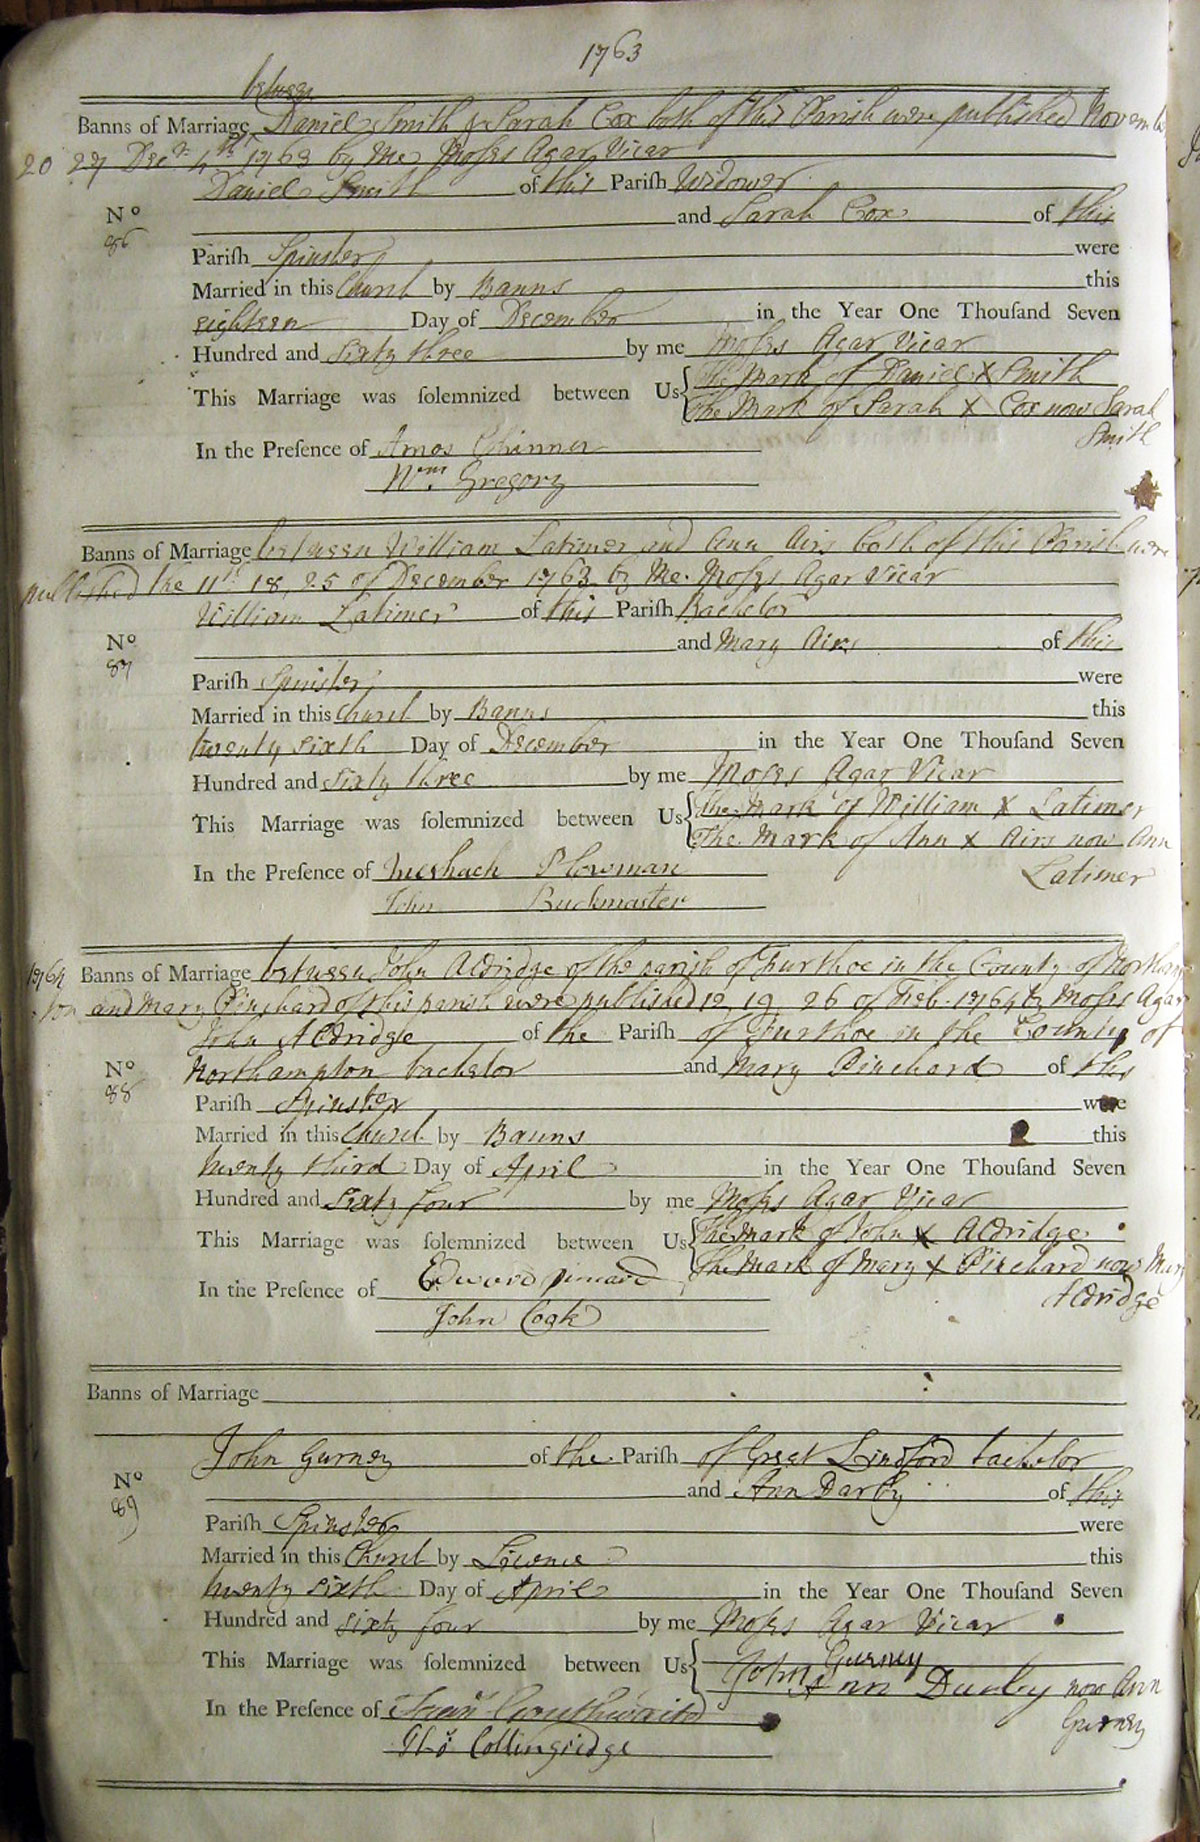 1763
between
Banns of Marriage Daniel Smith & Sarah Cox both of this Parish were published Novemb
20 27 Decr 4th 1763 by Me Moses Agar Vicar
Daniel Smith of this Pariſh Widower
No 86 and Sarah Cox of this
Pariſh Spinster were
Married in this Church by Banns this
eighteen Day of December in the Year One Thouſand Seven
Hundred and Sixty three by me Moses Agar Vicar
This Marriage was ſolemnized between Us { The Mark of Daniel X Smith
The Mark of Sarah X Cox now Sarah
Smith
In the Preſence of Amos Chinner
Wm. Gregory
Banns of Marriage between William Latimer and Ann Airs both of this Parish were
published the 11th 18, 25 of December 1763 by Me Moses Agar Vicar
William Latimer of this Pariſh Bachelor
No 87 and Mary Airs of this
Pariſh Spinster were
Married in this Church by Banns this
twenty sixth Day of December in the Year One Thouſand Seven
Hundred and Sixty three by me Moses Agar Vicar
This Marriage was ſolemnized between Us { The Mark of William X Latimer
The Mark of Ann X Airs now Ann
Latimer
In the Preſence of Meshach Plowman
John Buckmaster
1764 Banns of Marriage between John Aldridge of the parish of Furthoe in the County of Northam
ton and Mary Pinchard of this parish were published 12, 19 26 of Feb. 1764 by Moses Agar
John Aldridge of the Pariſh of Furthoe in the County of
No 88 Northampton bachelor and Mary Pinchard of this
Pariſh Spinster were
Married in this Church by Banns this
twenty third Day of April in the Year One Thouſand Seven
Hundred and Sixty four by me Moses Agar Vicar
This Marriage was ſolemnized between Us { The Mark of John X Aldridge
The Mark of Mary X Pinchard now Mary
Aldridge
In the Preſence of Edward
John Cook
Banns of Marriage
John Gurney of the Pariſh of Great Lindford bachelor
No 89 and Ann Darby of this
Pariſh Spinster were
Married in this Church by Licence this
twenty sixth Day of April in the Year One Thouſand Seven
Hundred and sixty four by me Moses Agar Vicar
This Marriage was ſolemnized between Us { John Gurney
Ann Durley now Ann
Gurney
In the Preſence of
Thos Collingridge